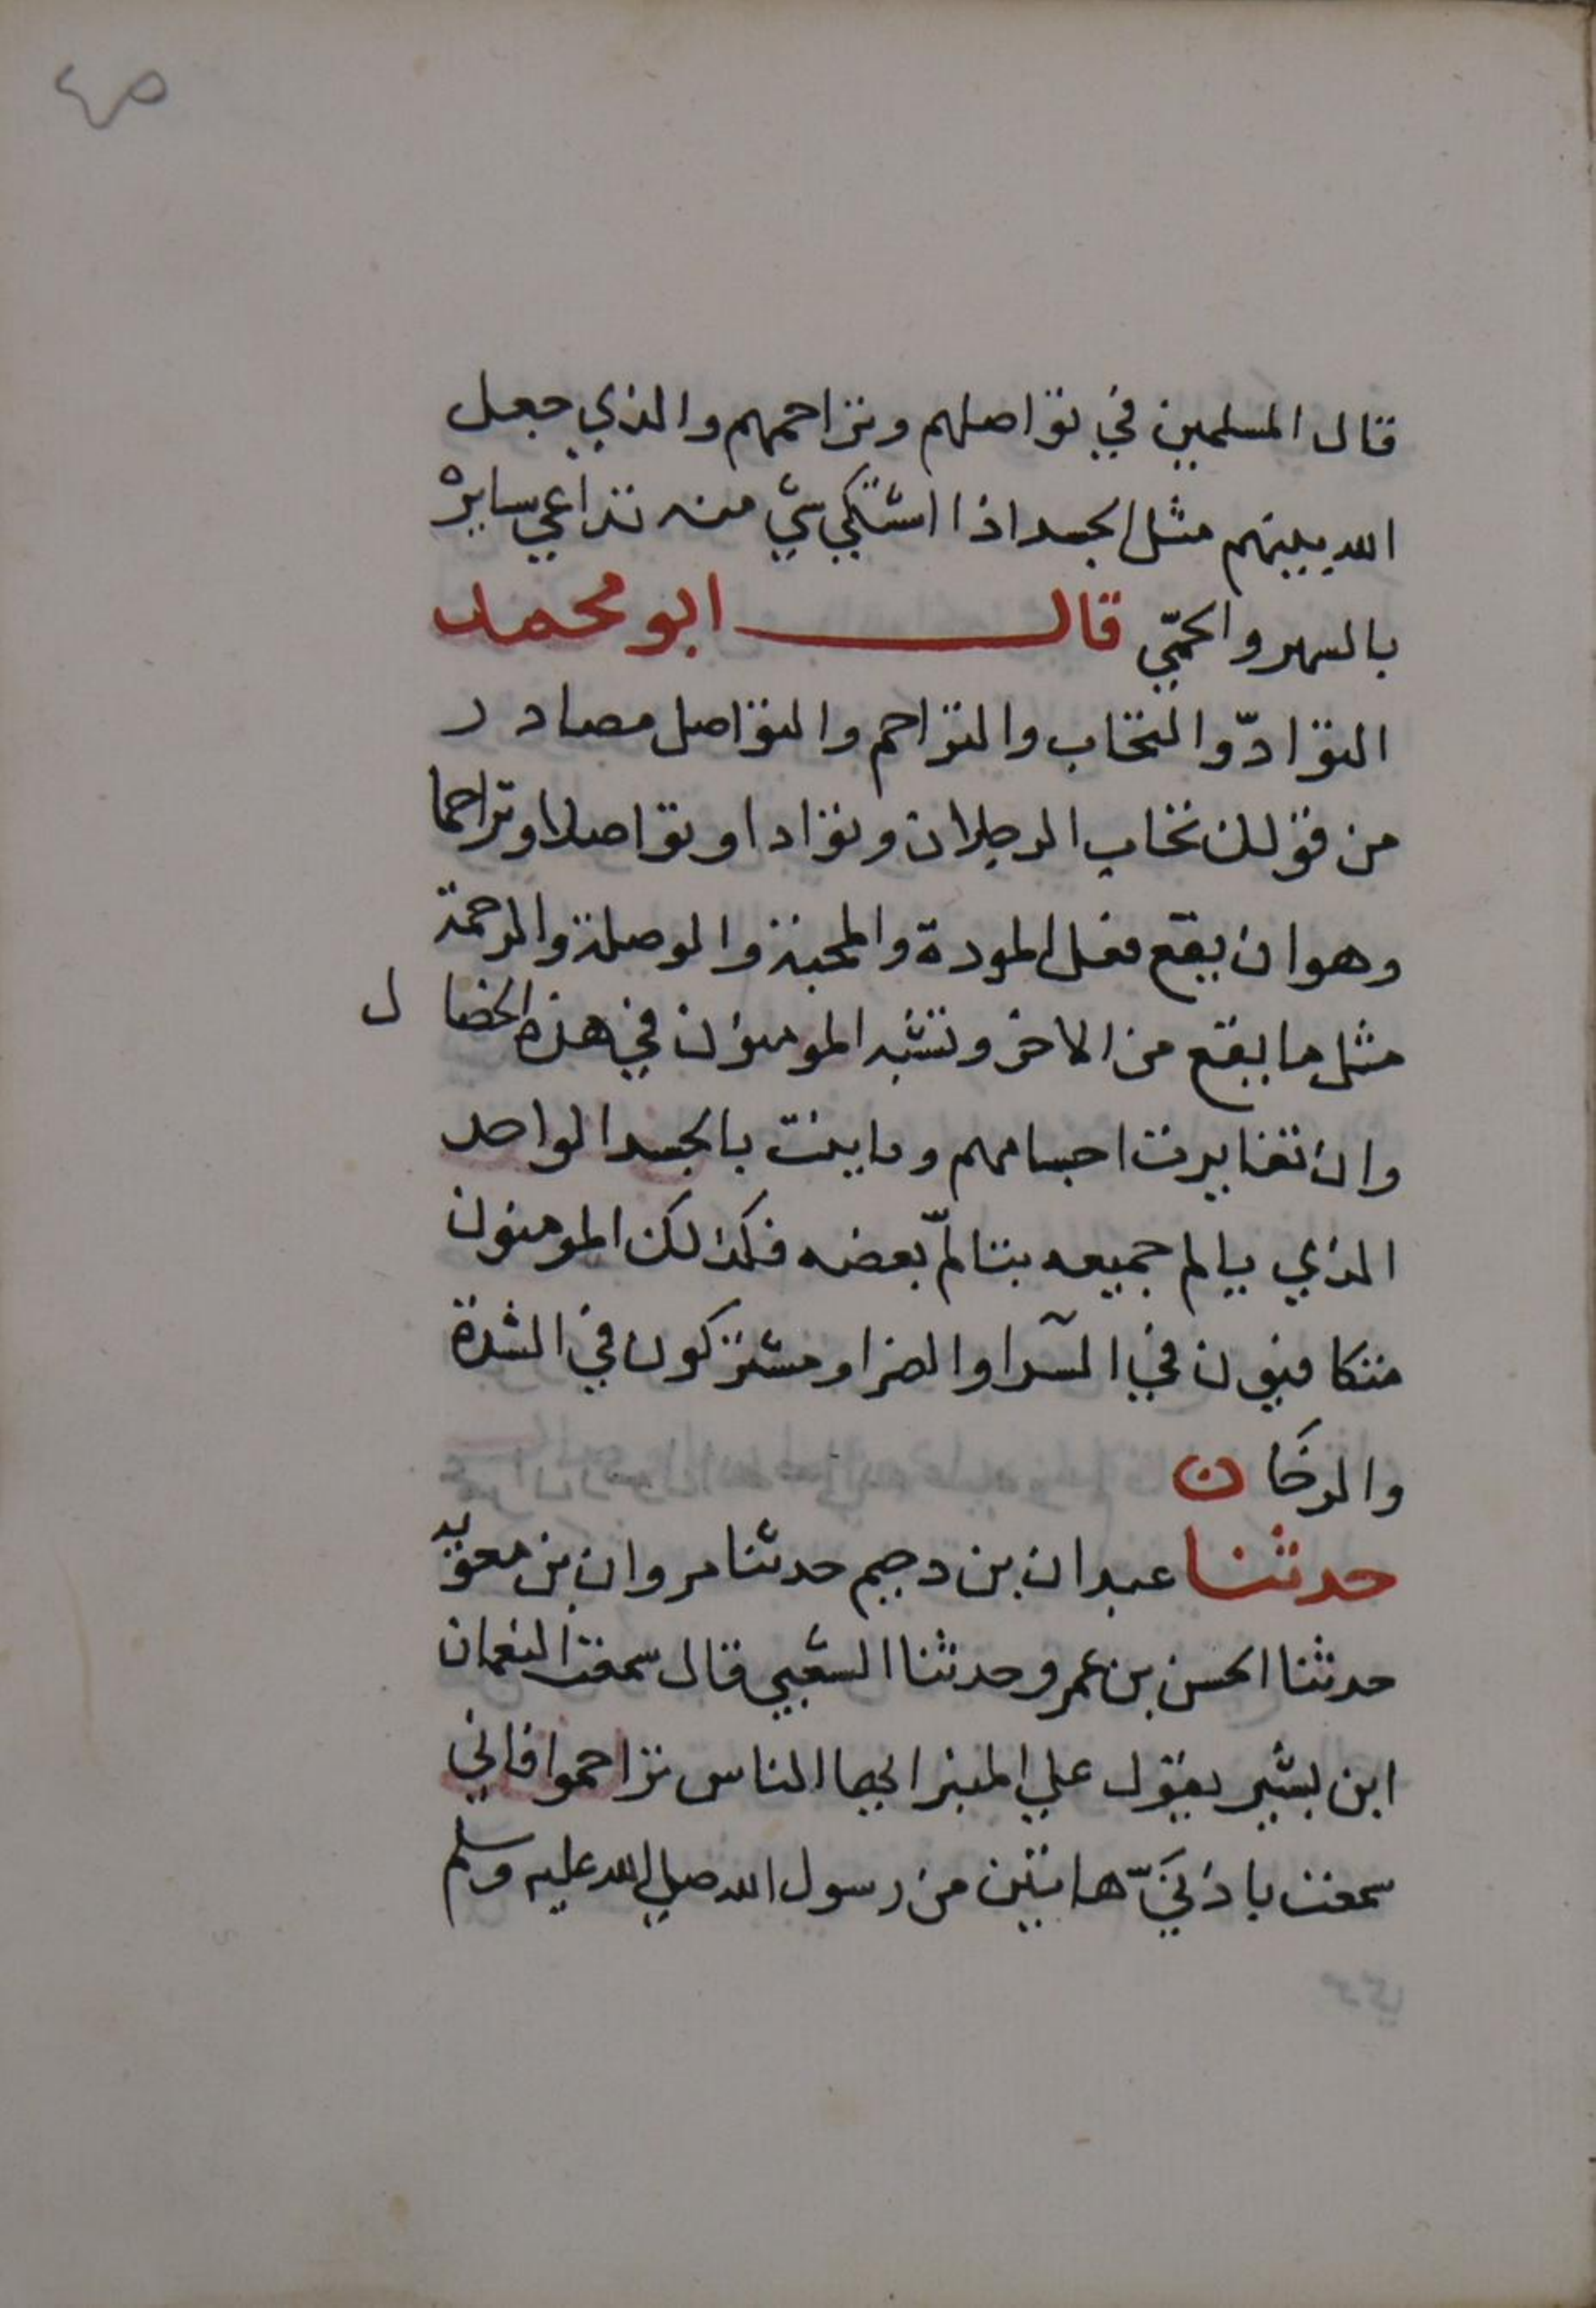 قال المسلمين في تواصلهم وتراحمهم والذي جعل
الله بينهم مثل الجسد اذا اشتكي شي منه تداعي سايره
بالسهر والحمّي قال ابو محمد
التوادّ والتحاب والتراحم والتواصل مصادر
من قولك تحاب الرجلان وتوادا وتواصلا وتراحما
وهو ان يقع فعل المودة والمحبة والوصلة والرحمة
مثل ما يقع من الاخر وتشبه المومنون في هذه الخصال
وان تغايرت اجسامهم وباينت بالجسد الواحد
الذي يالم جميعه بتالّم بعضه فكذلك المومنون
متكافيون في السّرا والضرا ومشتركون في الشدة
والرخان
حدثنا عبدان بن دحيم حدثنا مروان بن معوية
حدثنا الحسن بن عمرو حدثنا الشعبي قال سمعت النعمان
ابن بشير يقول علي المنبر ايها الناس تراحموا فاني
سمعت باذنيّ هاتين من رسول الله صلي الله عليه وسلم